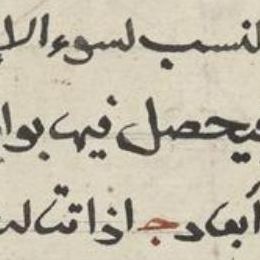 لنسب لسوء الا
فيحصل فيها بوا
أبعاد جـ اذا تتالت